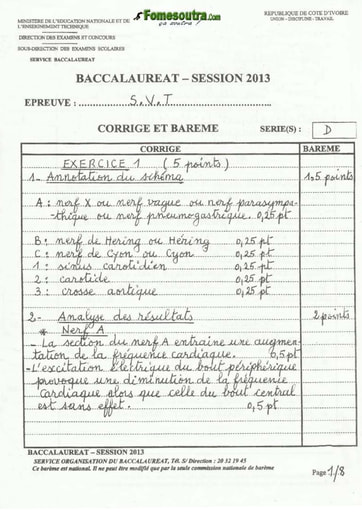 MINISTERE DE L'EDUCATION NATIONALE ET DE
L'ENSEIGNEMENT TECHNIQUE
Fomesoutra.com
ça soutra !
REPUBLIQUE DE COTE D'IVOIRE
UNION – DISCIPLINE – TRAVAIL
DIRECTION DES EXAMENS ET CONCOURS
SOUS-DIRECTION DES EXAMENS SCOLAIRES
SERVICE BACCALAUREAT
BACCALAUREAT – SESSION 2013
EPREUVE : S.V.T
CORRIGE ET BAREME SERIE(S) : D
CORRIGE BAREME
EXERCICE 1 (5 points)
1- Annotation du schéma 1,5 points
A : nerf X ou nerf vague ou nerf parasympa-
-thique ou nerf pneumogastrique. 0,25 pt
B : nerf de Hering ou Héring 0,25 pt
C : nerf de Cyon ou Cyon 0,25 pt
1 : sinus carotidien 0,25 pt
2 : carotide 0,25 pt
3 : crosse aortique 0,25 pt
2- Analyse des résultats 2 points
* Nerf A
- La section du nerf A entraine une augmen-
tation de la fréquence cardiaque. 0,5 pt
- L'excitation électrique du bout périphérique
provoque une diminution de la fréquence
cardiaque alors que celle du bout central
est sans effet. 0,5 pt
BACCALAUREAT – SESSION 2013
SERVICE ORGANISATION DU BACCALAUREAT, Tél. S/ Direction : 20 32 19 45
Ce barème est national. Il ne peut être modifié que par la seule commission nationale de barème
Page 1/8